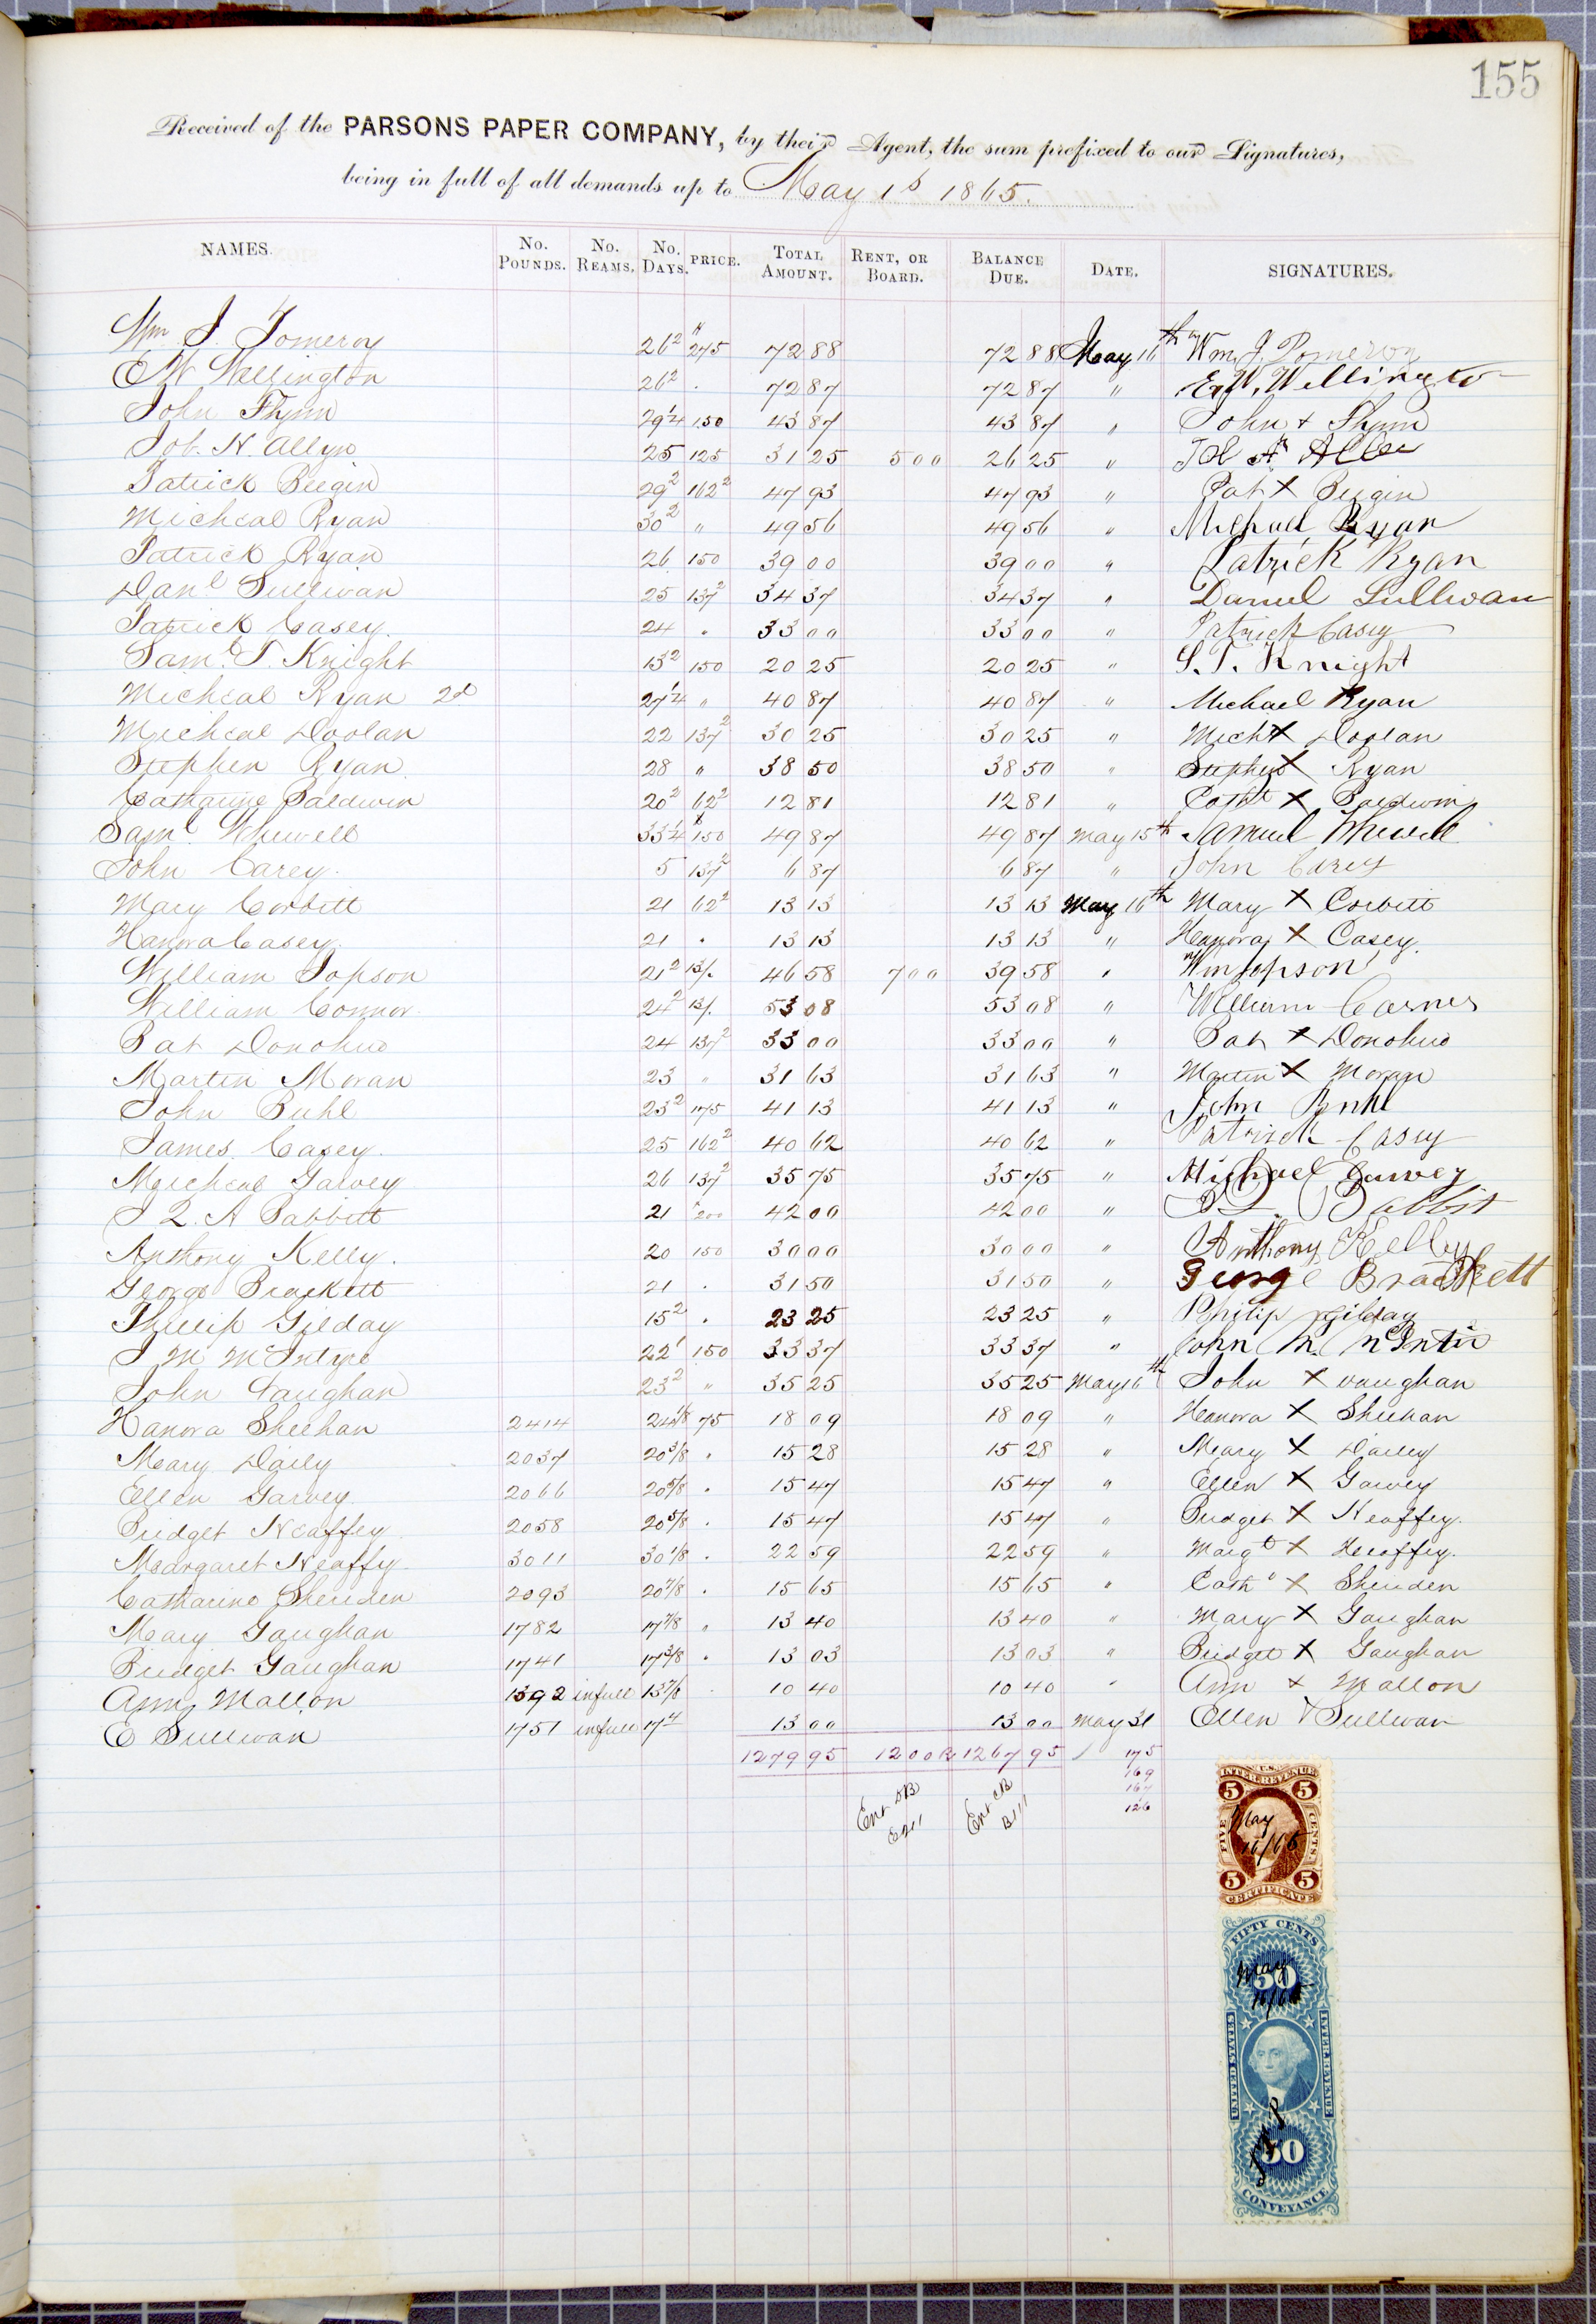 155
Received of the PARSONS PAPER COMPANY, by their Agent, the sum prefixed to our Signatures,
being in full of all demands up to May 1st 1865.
NAMES. No. POUNDS. No. REAMS. No. DAYS. PRICE. TOTAL AMOUNT. RENT, OR BOARD. BALANCE DUE. DATE. SIGNATURES.
Wm J. Pomeroy 26 2 " 275 72 88 72 88 May 16th Wm. J. Pomeroy
E W Wellington 26 2 " 72 87 72 87 " E. W. Wellington
John Flynn 29 1/4 150 43 87 43 87 " John + Flynn
Job. N. Allyn 25 125 31 25 5 00 26 25 "
Patrick Bergin 29 2 162 2 47 93 47 93 " Pat X Bergin
Micheal Ryan 30 2 " 49 56 49 56 " Michael Ryan
Patrick Ryan 26 150 39 00 39 00 " Patrick Ryan
Danl Sullivan 25 137 2 34 37 34 37 " Daniel Sullivan
Patrick Casey 24 " 33 00 33 00 " Patrick Casey
Saml T. Knight 13 2 150 20 25 20 25 " S. T. Knight
Micheal Ryan 2d 27 1/4 " 40 87 40 87 " Michael Ryan
Micheal Doolan 22 137 2 30 25 30 25 " Mich X Doolan
Stephen Ryan 28 " 38 50 38 50 " Stephen X Ryan
Catharine Baldwin 20 2 62 2 12 81 12 81 " Cath X Baldwin
Saml Whewell 33 1/4 150 49 87 49 87 May 15th Samuel Whewell
John Carey 5 137 2 6 87 6 87 " John Carey
Mary Corbitt 21 62 2 13 13 13 13 May 16th Mary X Corbitt
Hanora Casey 21 " 13 13 13 13 " Hanora X Casey
William Jopson 21 2 13/. 46 58 7 00 39 58 " Wm Jopson
William Connor 24 2 13/. 53 08 53 08 " William
Pat Donohue 24 137 2 33 00 33 00 " Pat X Donohue
Martin Moran 23 " 31 63 31 63 " Martin X Moran
John Buhl 23 2 175 41 13 41 13 " John Buhl
James Casey 25 162 2 40 62 40 62 " Patrick Casey
Micheal Garvey 26 137 2 35 75 35 75 " Michael Garvey
J Q. A Babbitt 21 200 42 00 42 00 " Babbit
Anthony Kelly 20 150 30 00 30 00 " Anthony Kelley
George Brackett 21 " 31 50 31 50 " George Brackett
Phillip Gilday 15 2 " 23 25 23 25 " Philip gilday
J M McIntyre 22 1 150 33 37 33 37 " John M.
John Vaughan 23 2 " 35 25 35 25 May 16th John X vaughan
Hanora Sheehan 2414 24 1/8 75 18 09 18 09 " Hanora X Sheehan
Mary Daily 2037 20 3/8 " 15 28 15 28 " Mary X Dailey
Ellen Garvey 2066 20 5/8 " 15 47 15 47 " Ellen X Garvey
Bridget Heaffey 2058 20 5/8 " 15 47 15 47 " Bridget X Heaffey
Margaret Heaffy 3011 30 1/8 " 22 59 22 59 " Margt X Heaffey
Catharine Sheriden 2093 20 7/8 " 15 65 15 65 " Cath X Sheriden
Mary Gaughan 1782 17 7/8 " 13 40 13 40 " Mary X Gaughan
Bridget Gaughan 1741 17 3/8 " 13 03 13 03 " Bridget X Gaughan
Ann Mallon 1392 in full 13 7/8 " 10 40 10 40 " Ann X Mallon
E Sullivan 1751 in full 17 4 13 00 13 00 May 31 Ellen X Sullivan
1279 95 12 00 1267 95 175
169
167
126
Ent DB
Ent CB
B111
U.S.
INTER. REVENUE
5 5
FIVE CENTS.
May
16/65
5 5
CERTIFICATE
FIFTY CENTS
50
May
16/65
UNITED STATES INTER. REVENUE
50
CONVEYANCE